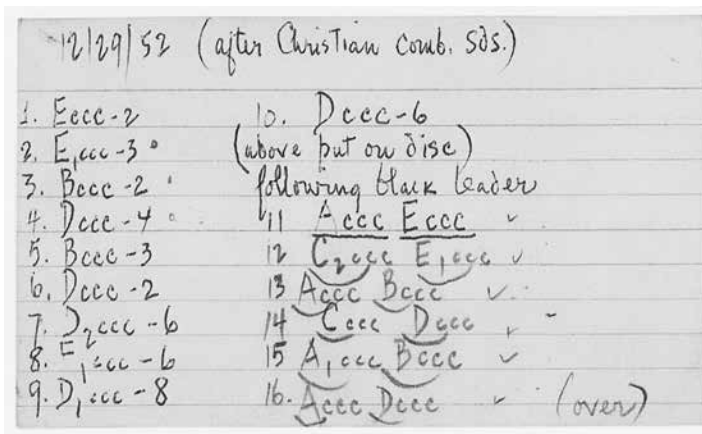 12/29/52 (after Christian Comb. Sds.)
1. Eccc-2
2. E₁ccc-3
3. Bccc-2
4. Dccc-4
5. Bccc-3
6. Dccc-2
7. D₂ccc-6
8. E₁ccc-6
9. D₁ccc-8
10. Dccc-6
(above put on disc)
following black leader
11 Accc Eccc ✓
12 C₂ccc E₁ccc ✓
13 Accc Bccc ✓
14 Cccc Dccc ✓
15 A₁ccc Bccc ✓
16. Accc Dccc ✓
(over)